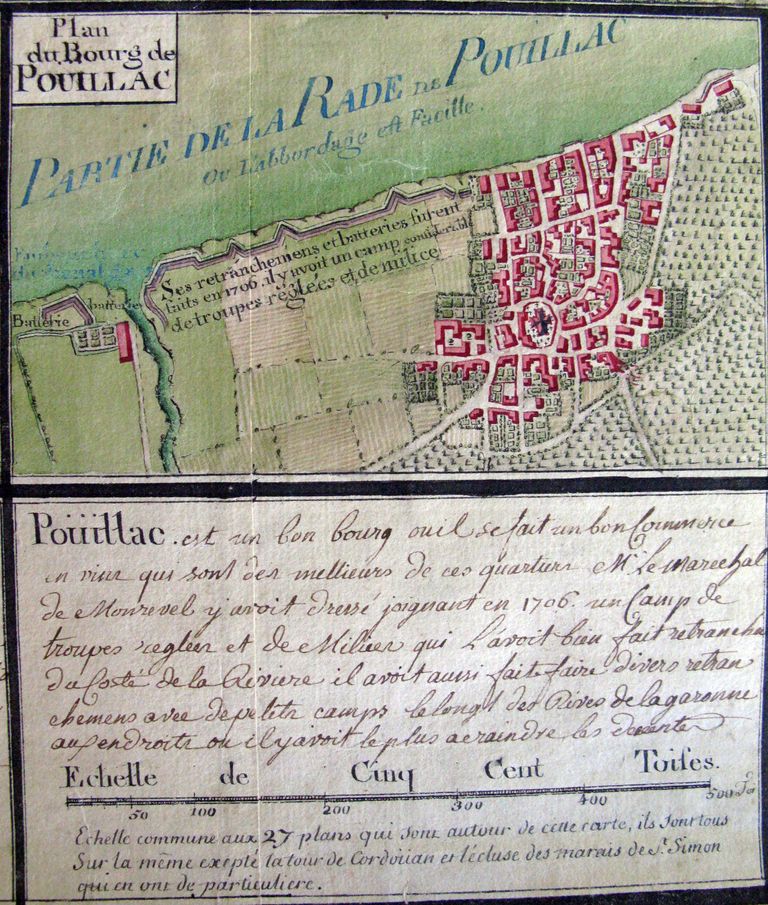 Plan
du Bourg de
POUILLAC
PARTIE DE LA RADE DE POUILLAC
Ou L'abbordage est Facille.
Ses retranchemens et batteries furent
faits en 1706. il y avoit un camp considerable
de troupes reglées et de milice
Batterie
batterie
Poüillac. est un bon bourg ou il se fait un bon Commerce
en vins qui sont des mellieurs de ces quartiers Mr. Le marechal
de Monrevel y avoit dressé joignant en 1706. un Camp de
troupes reglees et de Milices qui L'avoit bien fait retrancher
du Costé de la Riviere il avoit aussi fait faire divers retran
chemens avec de petits camps le long des Rives de la garonne
aux endroits ou il y avoit le plus a craindre les descentes
Echelle de Cinq Cent Toises.
50 100 200 300 400 500
Echelle commune aux 27 plans qui sont autour de cette carte, ils sont tous
Sur la même excepté la tour de Cordoüan et l'écluse des marais de St. Simon
qui en ont de particuliere.